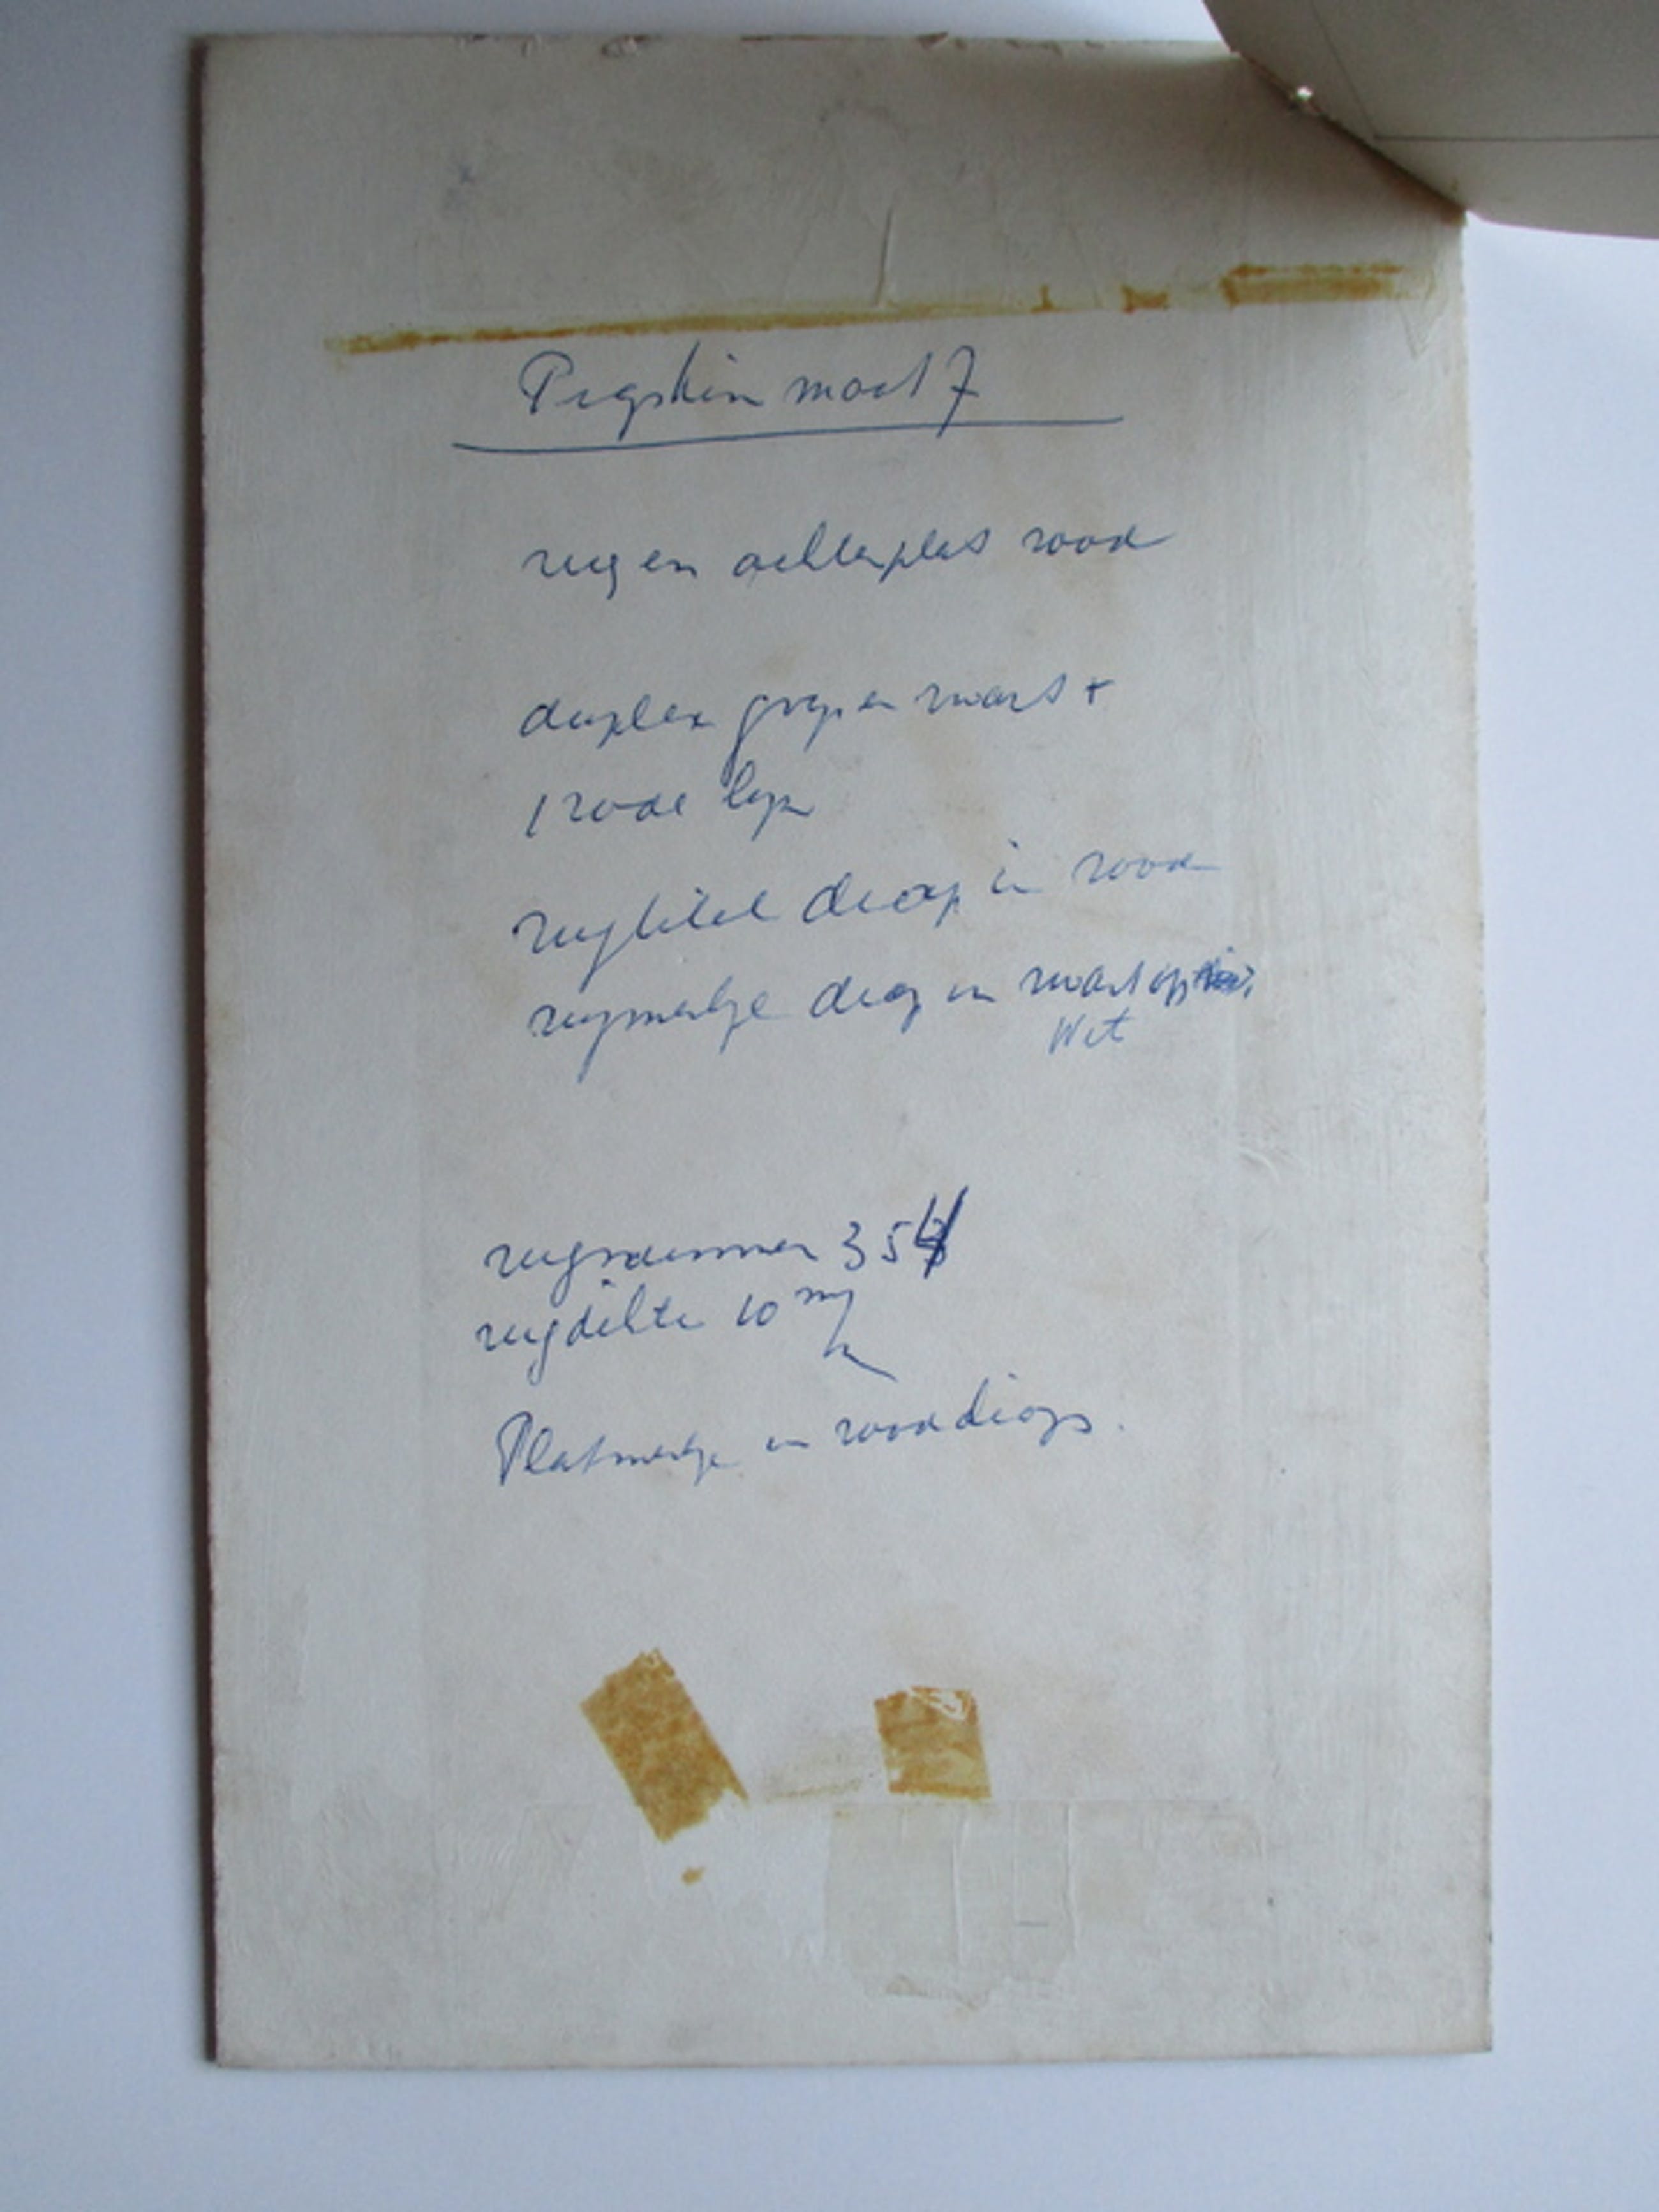 Pigskin maat 7
rug en achterplat rood
duplex grijs en zwart +
1 rode lap
rugtitel diap in rood
rugmerkje diap in zwart op
Wit
rugnummer 354
rugdikte 10 m/m
Platmerkje in rood diap.